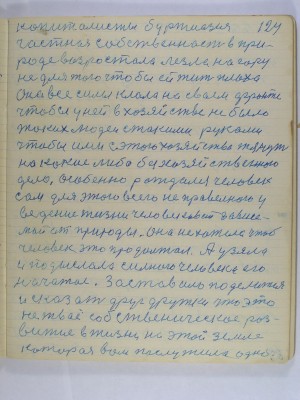 капиталисты буржуазия 124
частная собственность в при-
роде возростала лезла на гору
не для того чтобы ей жит плохо
Она все силы клала на своем
чтобы у ней в хозяйстве не было
таких людей с такими руками
чтобы ими с этого хозяйства тянут
на какое либо бесхозяйственное
дело, особенно рождался человек
сам для этого всего не правельного у
ведение жизни человеческой зависе-
мой от природы. Она не хотела чтоб
человек это продолжал. А узяла
и подыслала силного человека его
начатое. Заставило поделится
и сказат друг дружки что это
не твоё собственическое роз-
витие в жизни на этой земле
которая вам послужила одного